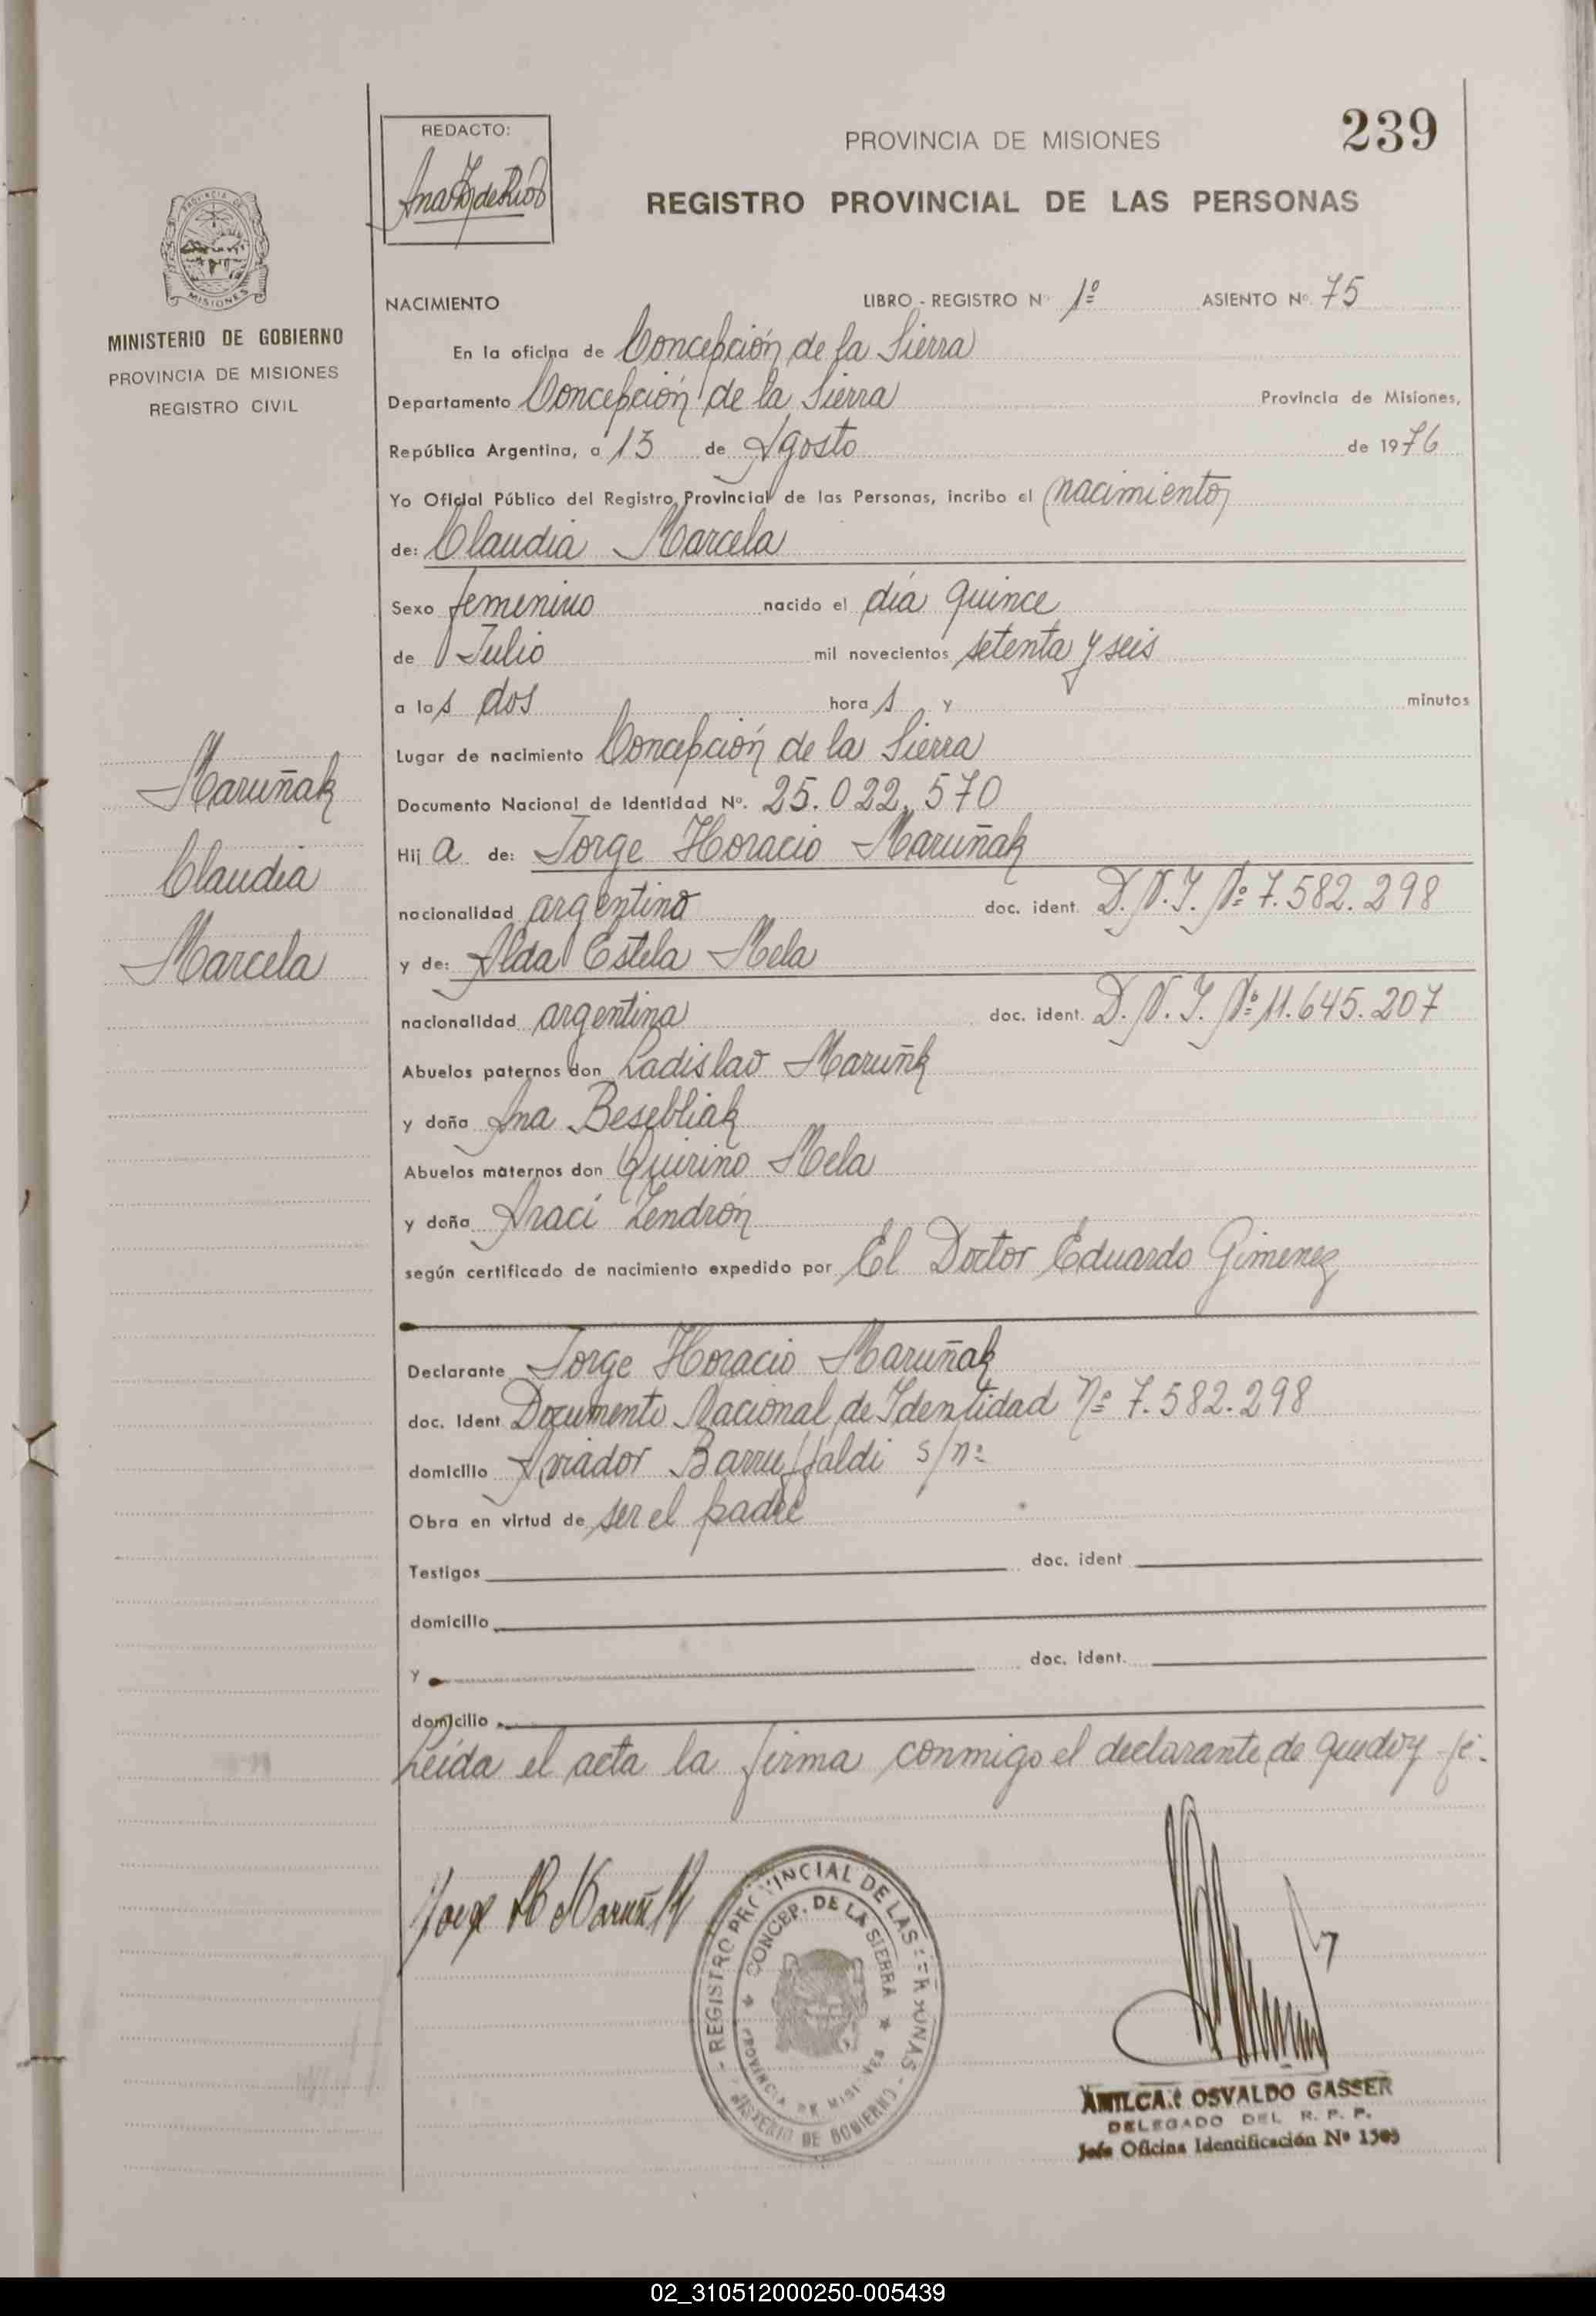 239
REDACTO:
PROVINCIA DE MISIONES
REGISTRO PROVINCIAL DE LAS PERSONAS
MINISTERIO DE GOBIERNO
PROVINCIA DE MISIONES
REGISTRO CIVIL
NACIMIENTO LIBRO - REGISTRO Nº 1º ASIENTO Nº 75
En la oficina de Concepción de la Sierra
Departamento Concepción de la Sierra Provincia de Misiones,
República Argentina, a 13 de Agosto de 1976
Yo Oficial Público del Registro Provincial de las Personas, incribo el nacimiento
de: Claudia Marcela
Sexo femenino nacido el día quince
de Julio mil novecientos setenta y seis
a las dos horas y minutos
Lugar de nacimiento Concepción de la Sierra
Documento Nacional de Identidad Nº. 25.022.570
Hija de: Jorge Horacio Maruñak
nacionalidad argentino doc. ident. D.N.I. Nº 7.582.298
y de: Alda Estela Mela
nacionalidad argentina doc. ident. D.N.I. Nº 11.645.207
Abuelos paternos don Ladislao Maruñk
y doña Ana Besebliak
Abuelos maternos don Quirino Mela
y doña Araci Zendrón
según certificado de nacimiento expedido por El Doctor Eduardo Gimenez
Maruñak
Claudia
Marcela
Declarante Jorge Horacio Maruñak
doc. Ident Documento Nacional de Identidad Nº 7.582.298
domicilio Aviador Barruffaldi s/nº
Obra en virtud de ser el padre
Testigos doc. ident
domicilio
y doc. Ident.
domicilio
Leída el acta la firma conmigo el declarante de que doy fé.
REGISTRO PROVINCIAL DE LAS PERSONAS
CONCEP. DE LA SIERRA
PROVINCIA DE MISIONES
MINISTERIO DE GOBIERNO
AMILCAR OSVALDO GASSER
DELEGADO DEL R. P. P.
Jefe Oficina Identificación Nº 1505
02_310512000250-005439